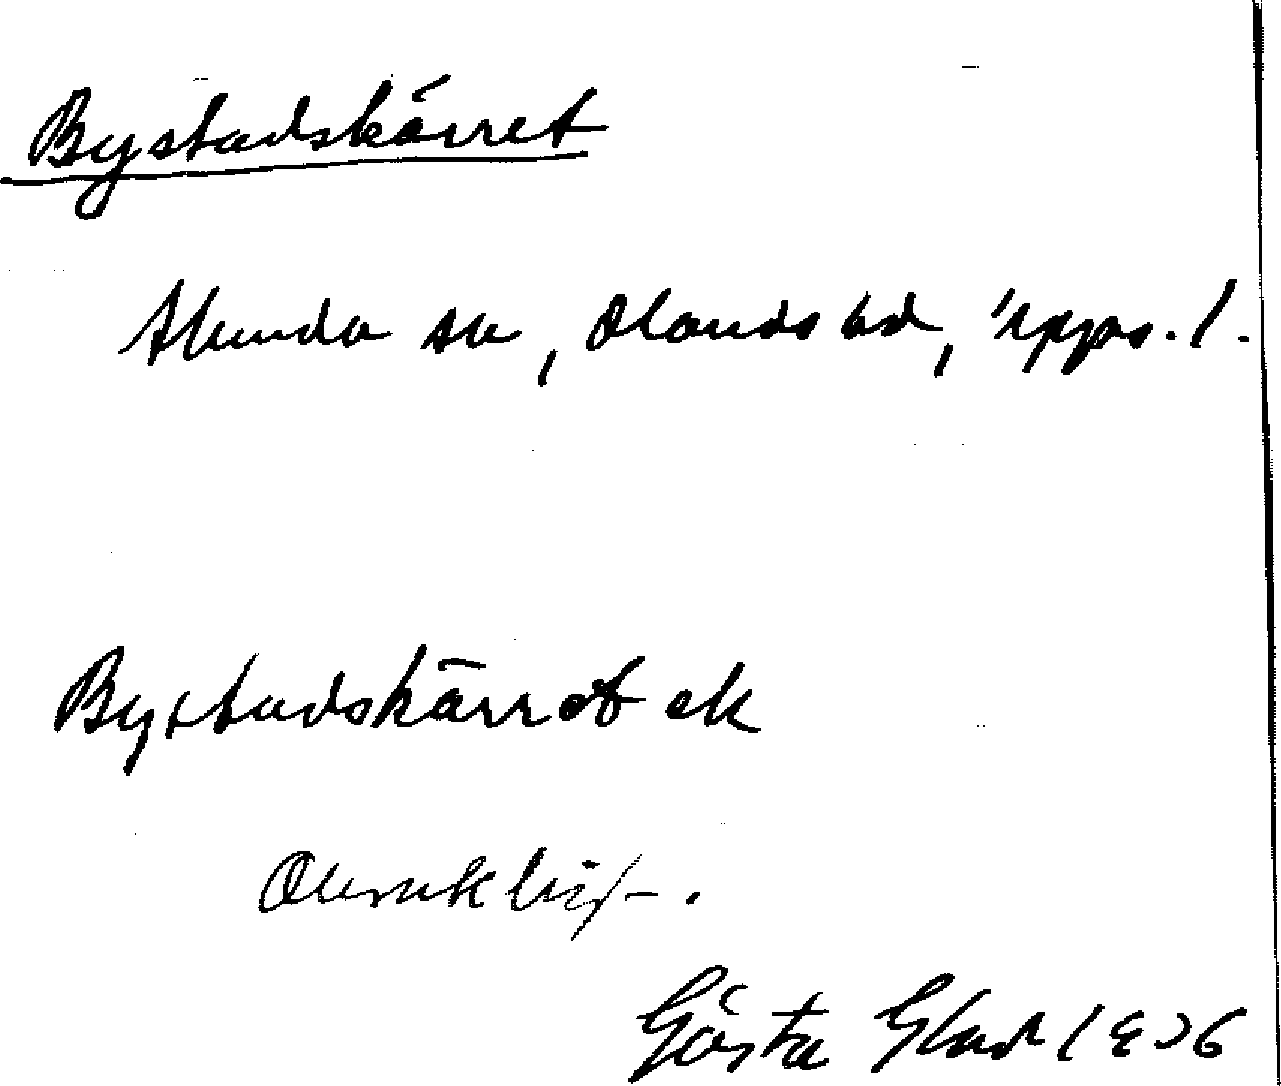 Bystadskärret
Alunda sn, Olands hd, Upps. l.
Bystadskärret ek
Obrukligt.
Gösta Glad 1936